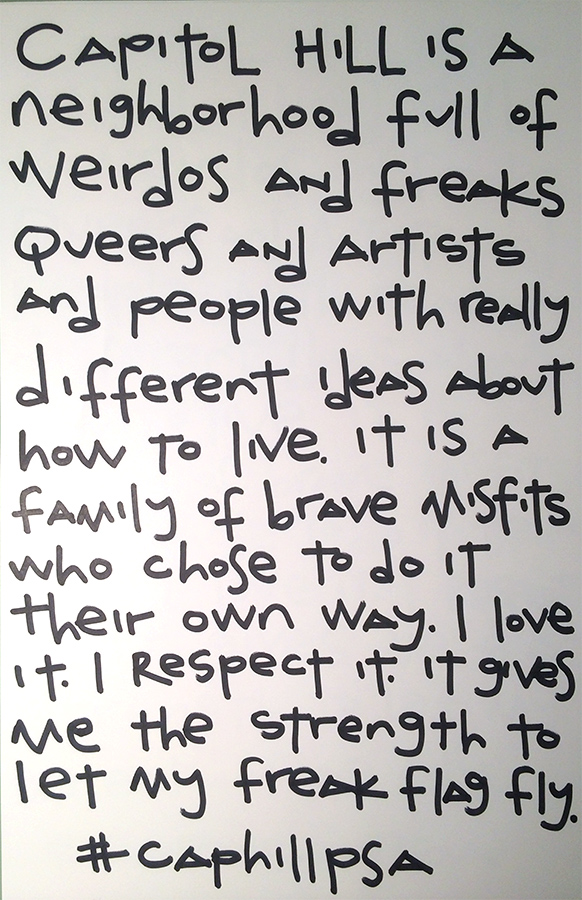 Capitol Hill is a
neighborhood full of
weirdos and freaks
Queers and artists
and people with really
different ideas about
how to live. it is a
family of brave misfits
who chose to do it
their own way. I love
it. I Respect it. it gives
me the strength to
let my freak flag fly.
#caphillpsa